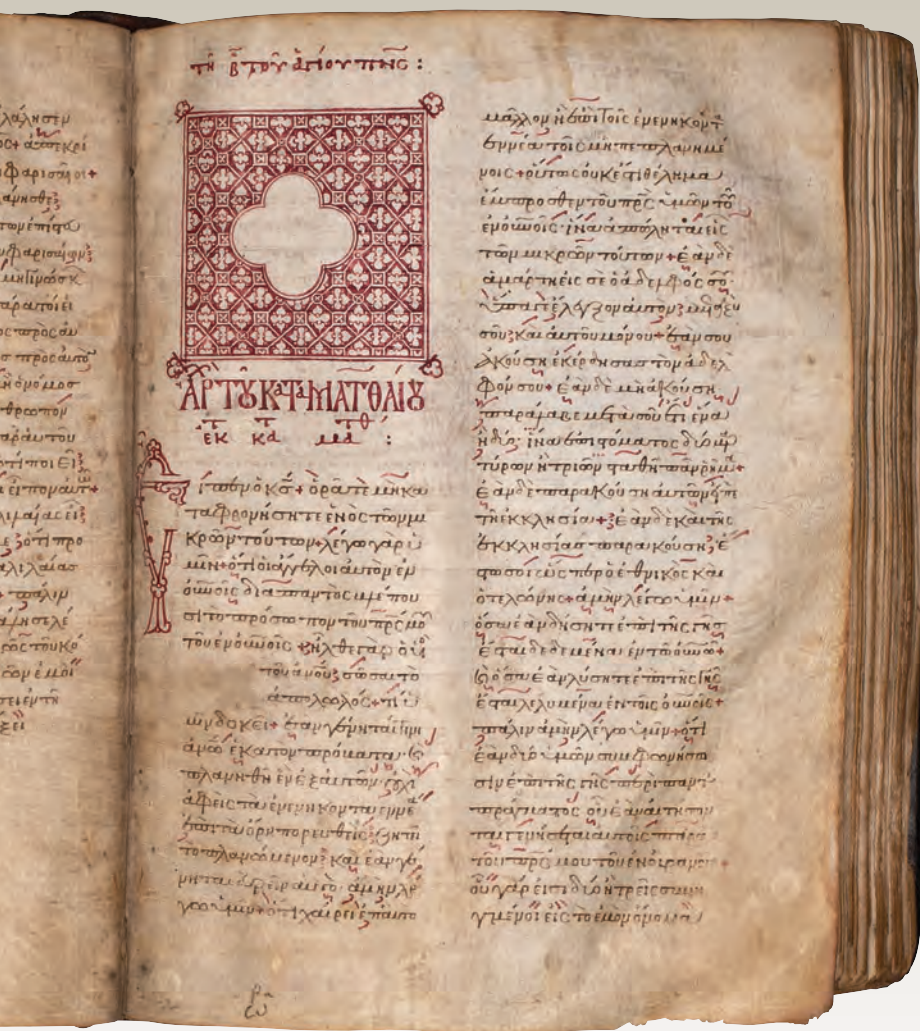 λάλησεν
ος+ ἀπεκρί
φαρισαῖοι+
λάνησθε;
φαρισαίων;
μὴ γινώσκ
ος πρὸς αὐ
πρὸς αὐτὸ
ὁ νόμος
θρωπον
παρ' αὐτοῦ
ότι ποιεῖ;
εἶπον αὐτ+
λιλαίας εἶ;
ε ὅτι προ
αλιλαίας
+ πάλιν
λησε λέ
φῶς τοῦ κό
ῶν ἐμοὶ
σει ἐν τῆ
ξει
τῆ β̄ τοῦ ἁγίου πν̅ς :
ἀρχ τοῦ κατὰ ματθαίου
ἐκ κα ματθ :
εἶπεν ὁ κς̅+ ὁρᾶτε μὴ κα
ταφρονήσητε ἑνὸς τῶν μι
κρῶν τούτων+ λέγω γὰρ ὑ
μῖν+ ὅτι οἱ ἄγγελοι αὐτῶν ἐν
οὐνοῖς διαπαντὸς βλέπου
σι τὸ πρόσωπον τοῦ πρ̅ς μο̅
τοῦ ἐν οὐνοῖς+ ἦλθε γὰρ ὁ υἱὸς
τοῦ ἀνου; σῶσαι τὸ
ἀπολωλός+ τί ὑ
μῖν δοκεῖ+ ἐὰν γένηταί τινι
ἀνω ἑκατὸν πρόβατα· κ
πλανηθῆ ἓν ἐξ αὐτῶν· οὐχὶ
ἀφεὶς τὰ ἐνενηκονταεννέ
ἐπὶ τὰ ὄρη πορευθεὶς ζητεῖ
τὸ πλανώμενον; καὶ ἐὰν γέ
νηται εὑρεῖν αὐτό· ἀμὴν λέ
γω ὑμῖν+ ὅτι χαίρει ἐπ' αὐτῶ
μᾶλλον ἢ ἐπὶ τοῖς ἐνενηκοντ
εννέα τοῖς μὴ πεπλανημέ
νοις+ οὕτως οὐκ ἔστι θέλημα
ἔμπροσθεν τοῦ πρς ὑμῶν το
ἐν οὐνοῖς· ἵνα ἀπόληται εἷς
τῶν μικρῶν τούτων+ ἐὰν δὲ
ἁμαρτήσ εἰς σὲ ὁ ἀδελφός σου
ὕπαγε ἔλεγξον αὐτὸν; μεταξὺ
σοῦ; καὶ αὐτοῦ μόνου+ ἐάν σου
ἀκούση ἐκέρδησας τὸν ἀδελ
φόν σου+ ἐὰν δὲ μὴ ἀκούση
παράλαβε μετὰ σοῦ ἔτι ἕνα
ἢ δύο· ἵνα ἐπὶ στόματος δύο μαρ
τύρων ἢ τριῶν σταθῆ πᾶν ῥῆμα+
ἐὰν δὲ παρακούση αὐτῶν εἰπὲ
τῆ ἐκκλησία+ ἐὰν δὲ καὶ τῆς
ἐκκλησίας παρακούση; ἔ
στω σοι ὡς περ ὁ ἐθνικὸς καὶ
ὁ τελώνης+ ἀμὴν λέγω ὑμῖν+
ὅσα ἐὰν δήσητε ἐπὶ τῆς γῆς
ἔσται δεδεμένα ἐν τῶ οὐνω+
κ ὅσα ἐὰν λύσητε ἐπὶ τῆς γῆς
ἔσται λελυμένα ἐν τοῖς οὐνοῖς+
πάλιν ἀμὴν λέγω ὑμῖν+ ὅτι
ἐὰν δύο ὑμῶν συμφωνήσω
σιν ἐπὶ τῆς γῆς περὶ παντὸς
πράγματος οὗ ἐὰν αἰτήσων
ται γενήσεται αὐτοῖς παρὰ
τοῦ πρς μου τοῦ ἐν οὐρανοις+
οὗ γάρ εἰσι δύο ἢ τρεῖς συνη
γμένοι εἰς τὸ ἐμὸν ὄνομα